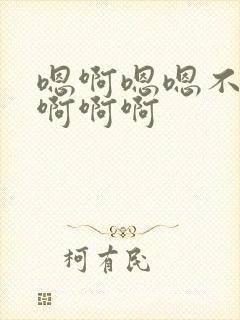 嗯啊嗯嗯不
啊啊啊
柯有民